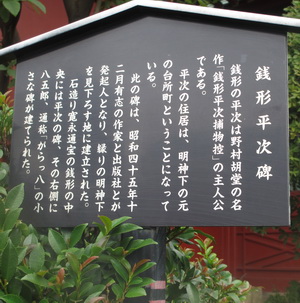 銭形平次碑
銭形の平次は野村胡堂の名
作「銭形平次捕物控」の主人公
である。
平次の住居は、明神下の元
の台所町ということになって
いる。
此の碑は、昭和四十五年十
二月有志の作家と出版社とが
発起人となり、縁りの明神下
を見下ろす地に建立された。
石造り寛永通宝の銭形の中
央には平次の碑、その右側に
八五郎、通称「がらっ八」の小
さな碑が建てられた。